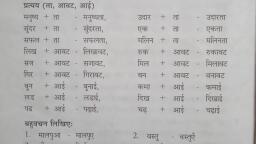 प्रत्यय (ता, आवट, आई)
मनुष्य + ता - मनुष्यता, उदार + ता - उदारता
सुंदर + ता - सुंदरता, एक + ता - एकता
सफल + ता - सफलता, मलिन + ता - मलिनता
लिख + आवट - लिखावट, रुक + आवट - रुकावट
सज + आवट - सजावट, मिल + आवट - मिलावट
गिर + आवट - गिरावट, बन + आवट - बनावट
बुन + आई - बुनाई, कमा + आई - कमाई
लड़ + आई - लड़ाई, दिख + आई - दिखाई
पढ़ + आई - पढ़ाई, चढ़ + आई - चढ़ाई
बहुवचन लिखिए:
1. मालपुआ - मालपुए 2. वस्तु - वस्तुएँ